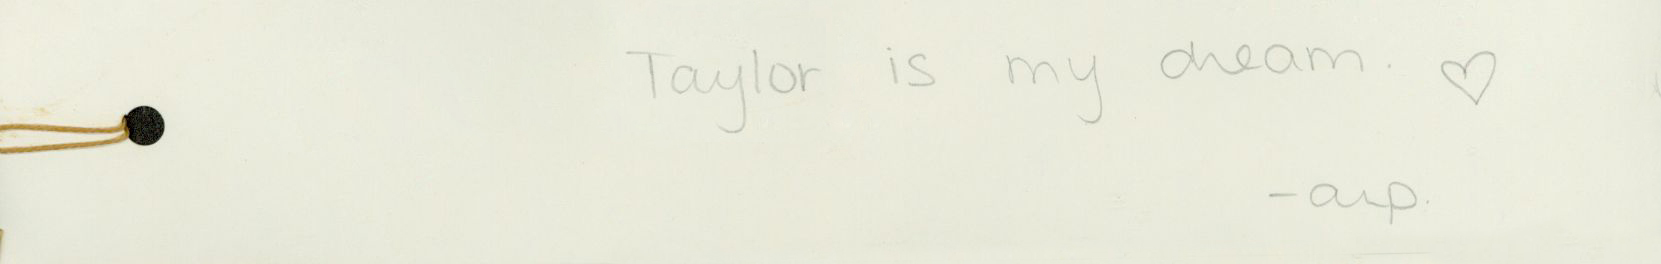 Taylor is my dream. ♡
-arp.